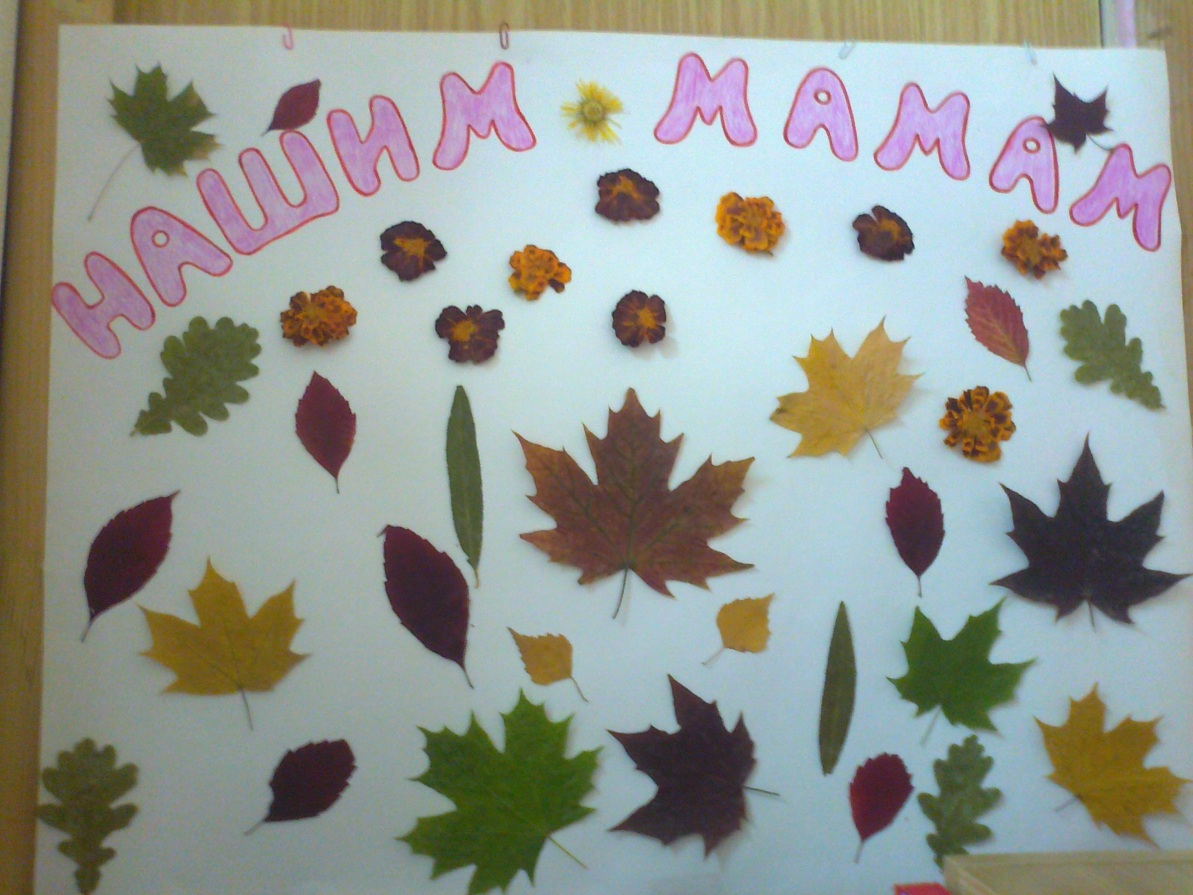 НАШИМ МАМАМ